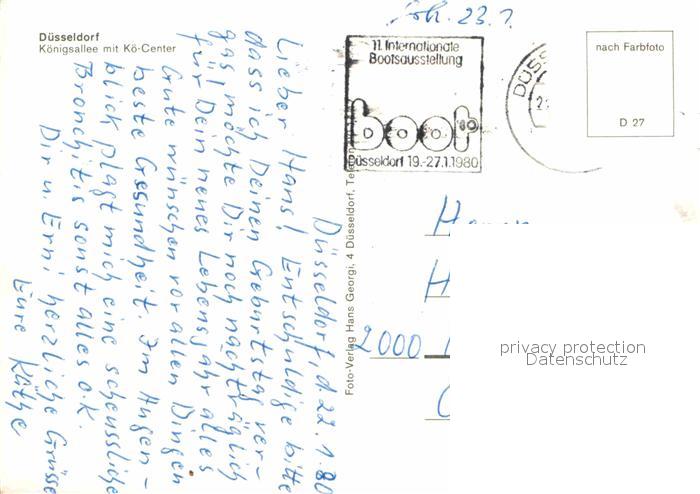 Düsseldorf
Königsallee mit Kö-Center
Erh. 23.1.
11. Internationale
Bootsausstellung
boot '80
Düsseldorf 19.-27.1.1980
DÜSS
nach Farbfoto
D 27
Düsseldorf, d. 22.1.80
Lieber Hans! Entschuldige bitte
dass ich Deinen Geburtstag ver-
gaß! möchte Dir noch nachträglich
für Dein neues Lebensjahr alles
Gute wünschen vor allen Dingen
beste Gesundheit. Im Augen-
blick plagt mich eine scheussliche
Bronchitis sonst alles o.k.
Dir u. Erni herzliche Grüsse
Eure Käthe
Foto-Verlag Hans Georgi, 4 Düsseldorf,
H
H
2000
privacy protection
Datenschutz